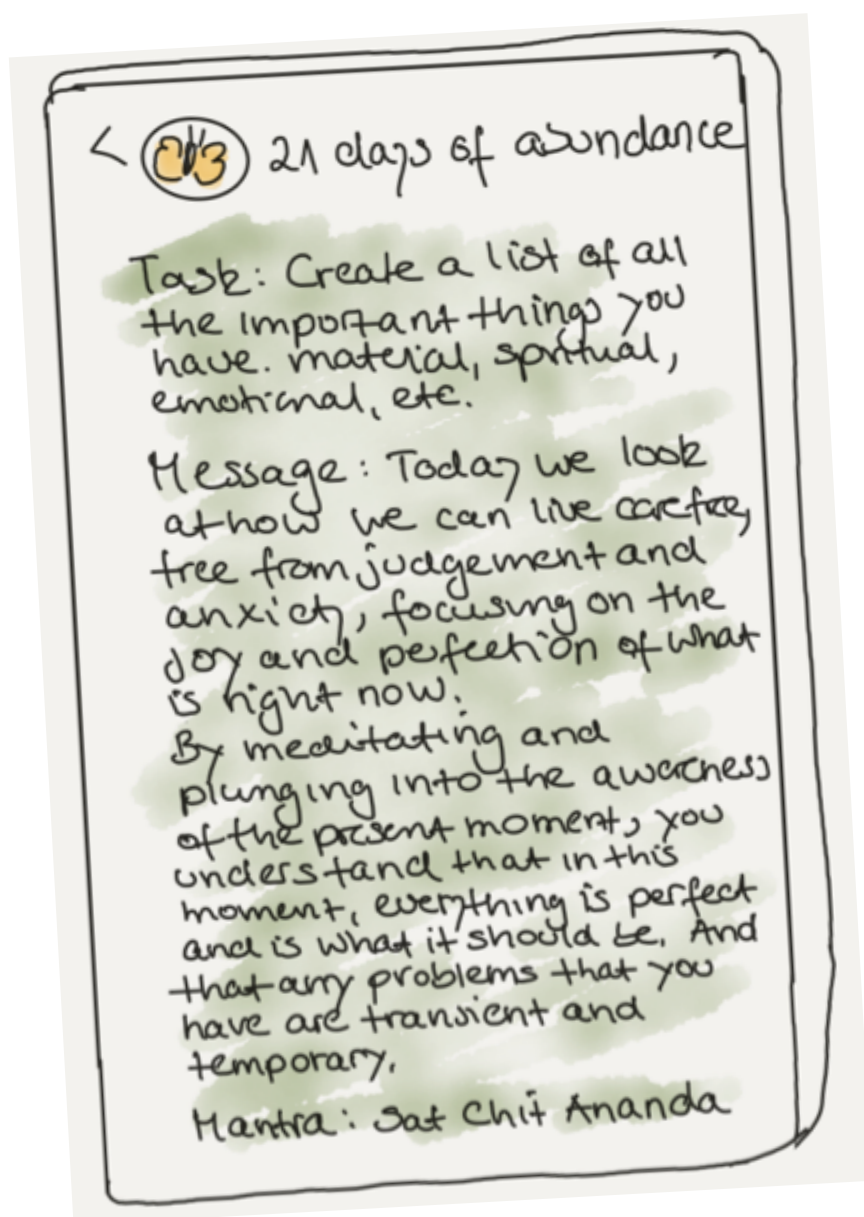 < 21 days of abundance
Task: Create a list of all
the important things you
have. material, spritual,
emotional, etc.
Message: Today we look
at how we can live carefree,
free from judgement and
anxiety, focusing on the
joy and perfection of what
is right now.
By meditating and
plunging into the awareness
of the present moment, you
understand that in this
moment, everything is perfect
and is what it should be. And
that any problems that you
have are transient and
temporary.
Mantra: Sat Chit Ananda